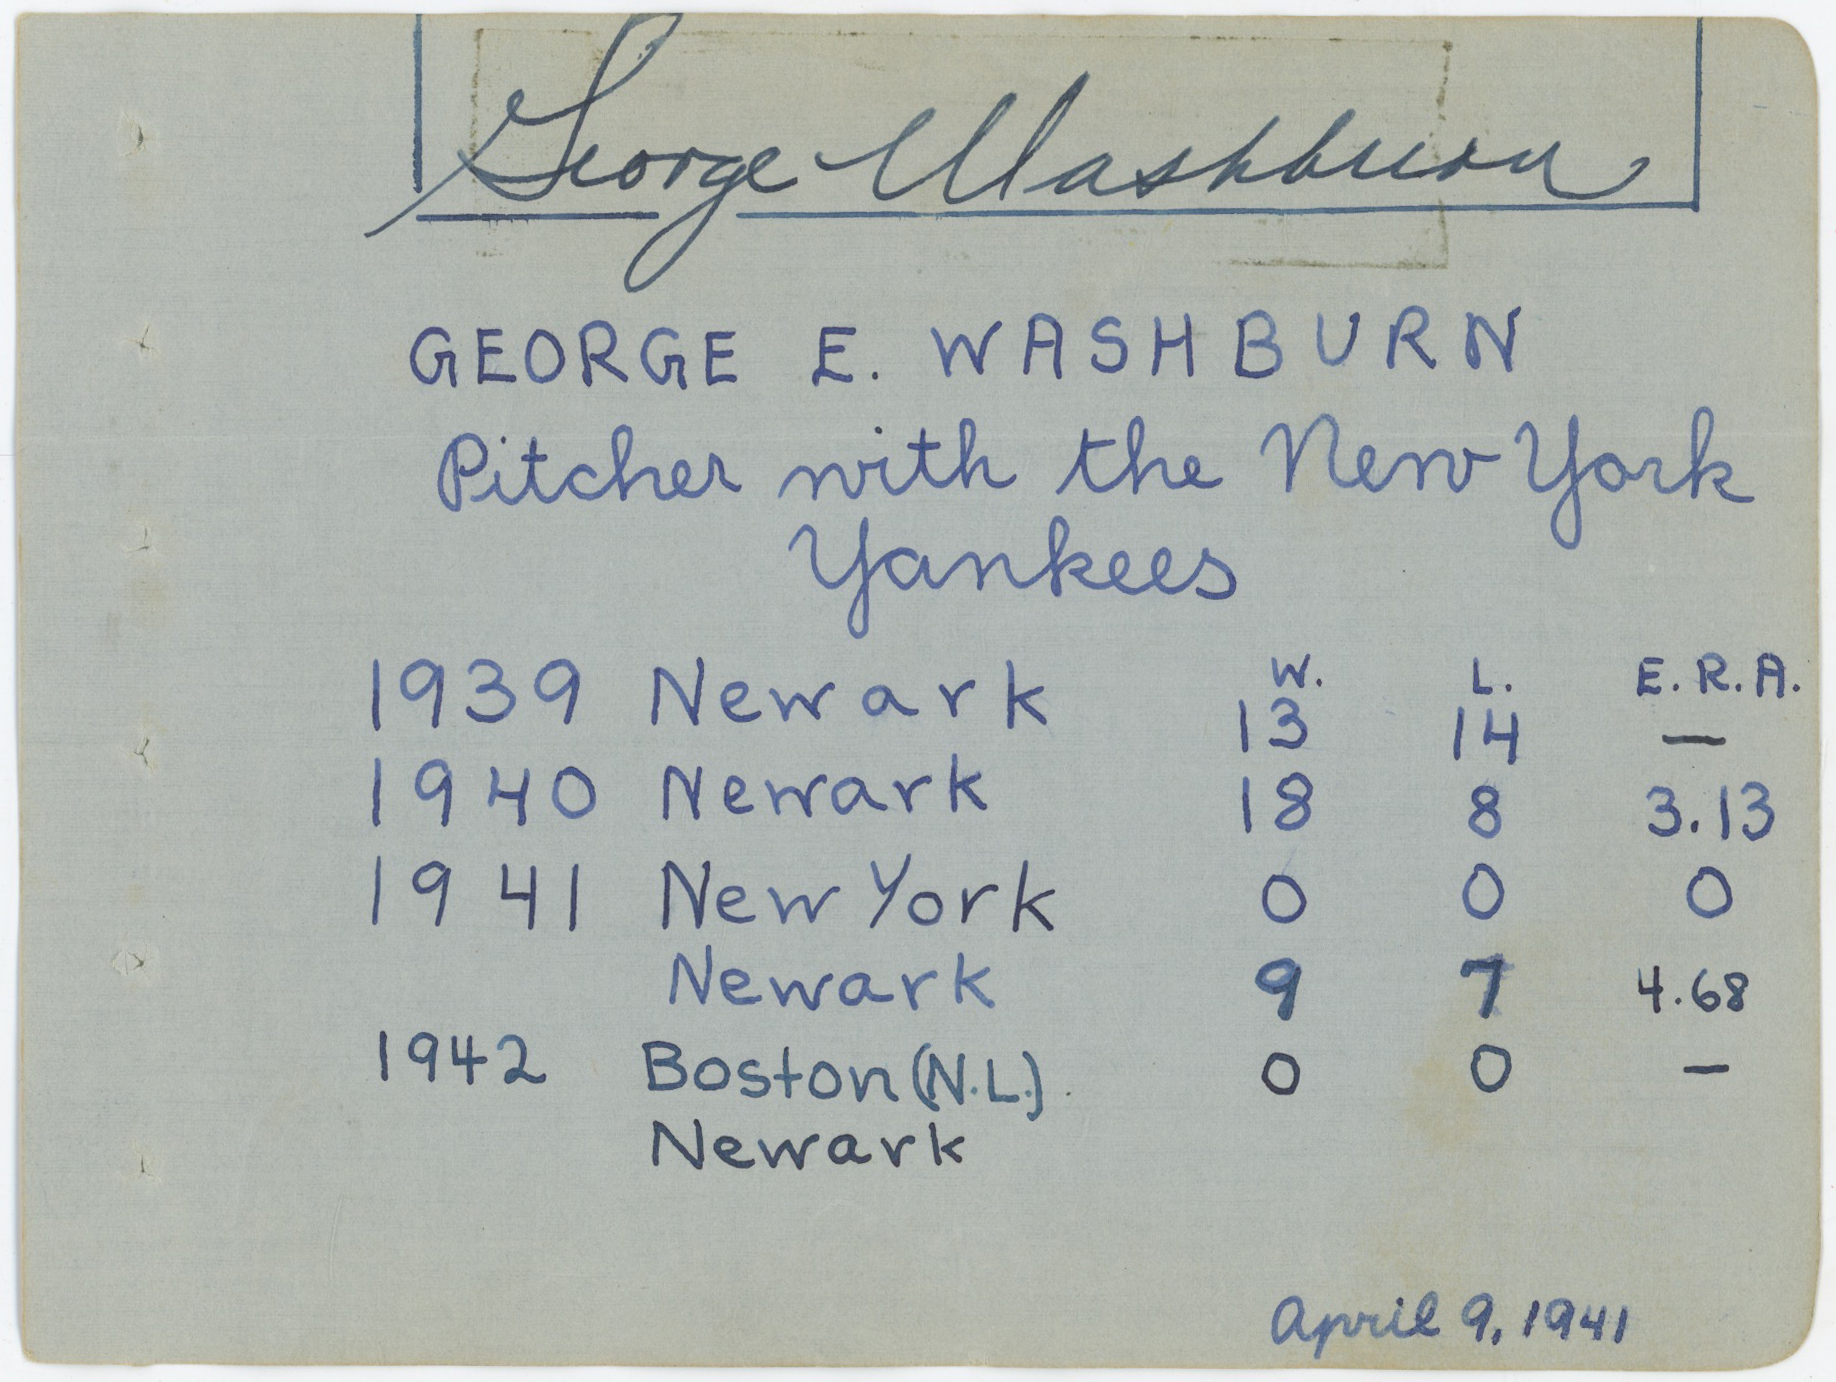 George Washburn
GEORGE E. WASHBURN
Pitcher with the New York
Yankees
W. L. E.R.A.
1939 Newark 13 14 —
1940 Newark 18 8 3.13
1941 New York 0 0 0
Newark 9 7 4.68
1942 Boston (N.L.) 0 0 —
Newark
April 9, 1941